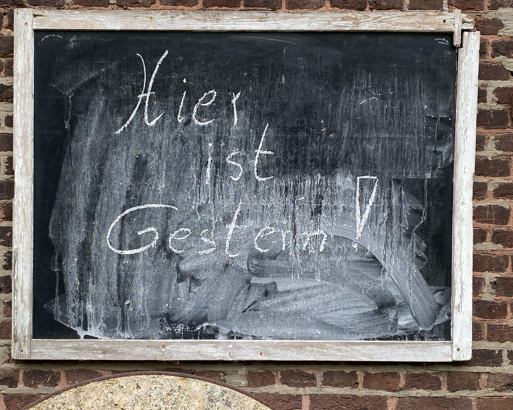 Hier
ist
Gestern!